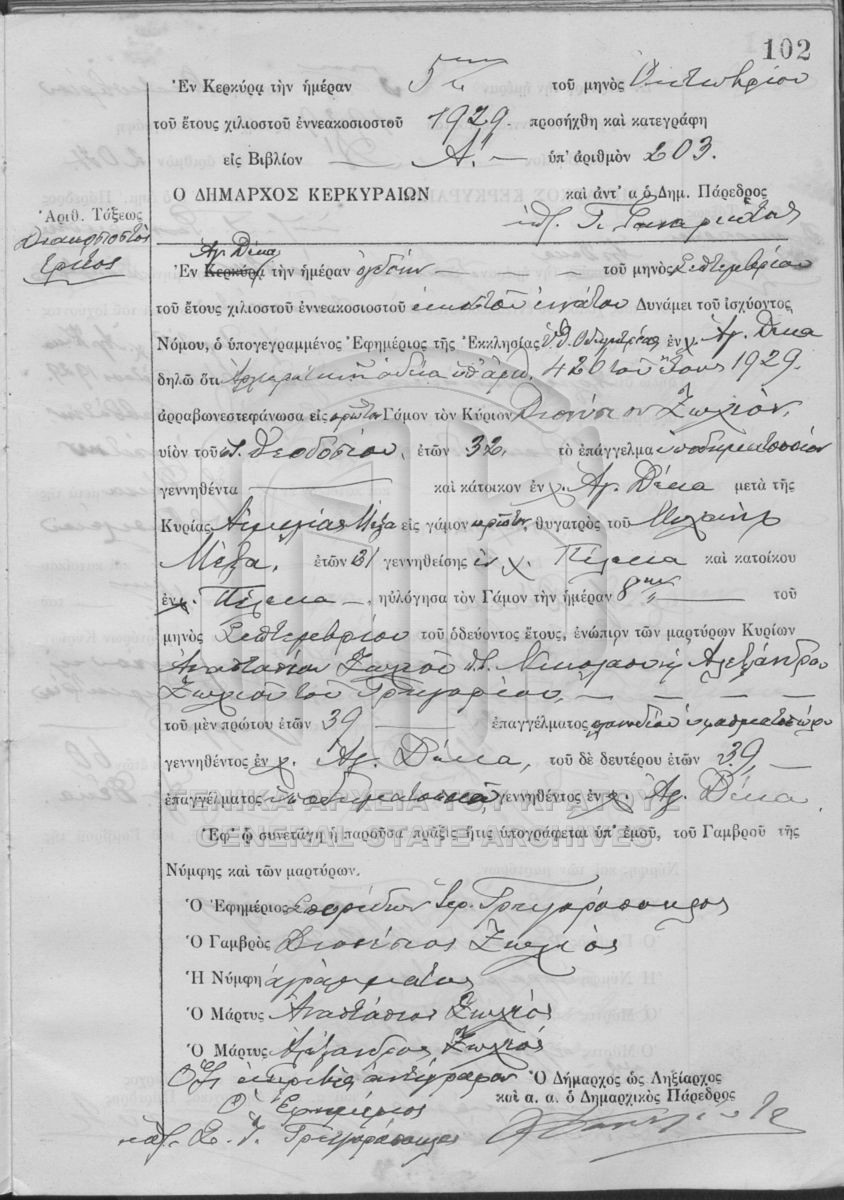 102
Ἐν Κερκύρᾳ τὴν ἡμέραν 5ην τοῦ μηνὸς Ὀκτωβρίου
τοῦ ἔτους χιλιοστοῦ ἐννεακοσιοστοῦ 1929. προσήχθη καὶ κατεγράφη
εἰς Βιβλίον — Α΄. — ὑπ' ἀριθμὸν 203.
Ο ΔΗΜΑΡΧΟΣ ΚΕΡΚΥΡΑΙΩΝ καὶ ἀντ' α ὁ Δημ. Πάρεδρος
Ἀριθ. Τάξεως
Διακοσιοστὸς
τρίτος
Ἁγ. Δέκα
Ἐν Κερκύρᾳ τὴν ἡμέραν ὀγδόην — — — τοῦ μηνὸς Σεπτεμβρίου
τοῦ ἔτους χιλιοστοῦ ἐννεακοσιοστοῦ εἰκοστοῦ ἐνάτου Δυνάμει τοῦ ἰσχύοντος
Νόμου, ὁ ὑπογεγραμμένος Ἐφημέριος τῆς Ἐκκλησίας Ὁδηγητρίας ἐν χ. Ἁγ. Δέκα
δηλῶ ὅτι Ἀρχιερατικῇ ἀδείᾳ ὑπ' ἀριθ. 420 τοῦ ἔτους 1929.
ἀρραβωνεστεφάνωσα εἰς πρῶτον Γάμον τὸν Κύριον Διονύσιον Ζωχιὸν,
υἱὸν τοῦ Θεοδοσίου, ἐτῶν 32, τὸ ἐπάγγελμα ὑποδηματοποιὸν
γεννηθέντα — καὶ κάτοικον ἐν χ. Ἁγ. Δέκα μετὰ τῆς
Κυρίας Αἰμιλίας Μέξα εἰς γάμον πρῶτον, θυγατρὸς τοῦ Μιχαὴλ
Μέξα, ἐτῶν 31 γεννηθείσης ἐν χ. Πέλεκα καὶ κατοίκου
ἐν χ. Πέλεκα —, ηὐλόγησα τὸν Γάμον τὴν ἡμέραν 8ην — τοῦ
μηνὸς Σεπτεμβρίου τοῦ ὁδεύοντος ἔτους, ἐνώπιον τῶν μαρτύρων Κυρίων
Ἀναστασίου Ζωχιοῦ Νικολάου ἢ Ἀλεξάνδρου
Ζωχιοῦ τοῦ Γρηγορίου, — — — —
τοῦ μὲν πρώτου ἐτῶν 39 — ἐπαγγέλματος
γεννηθέντος ἐν χ. Ἁγ. Δέκα, τοῦ δὲ δευτέρου ἐτῶν 39, —
ἐπαγγέλματος ὑποδηματοποιοῦ, γεννηθέντος ἐν χ. Ἁγ. Δέκα
ΓΕΝΙΚΑ ΑΡΧΕΙΑ ΤΟΥ ΚΡΑΤΟΥΣ
Ἐφ' ᾧ συνετάγη ἡ παροῦσα πρᾶξις ἥτις ὑπογράφεται ὑπ' ἐμοῦ, τοῦ Γαμβροῦ τῆς
GENERAL STATE ARCHIVES
Νύμφης καὶ τῶν μαρτύρων.
Ὁ Ἐφημέριος Σπυρίδων Ἱερ. Γρηγορόπουλος
Ὁ Γαμβρὸς Διονύσιος Ζωχιὸς
Ἡ Νύμφη ἀγράμματος
Ὁ Μάρτυς Ἀναστάσιος Ζωχιός
Ὁ Μάρτυς Ἀλέξανδρος Ζωχιός
Ὅτι ἀκριβὲς ἀντίγραφον
Ὁ Δήμαρχος ὡς Ληξίαρχος
Ὁ Ἐφημέριος
καὶ α. α. ὁ Δημαρχικὸς Πάρεδρος
Σ. Ἱ. Γρηγορόπουλος